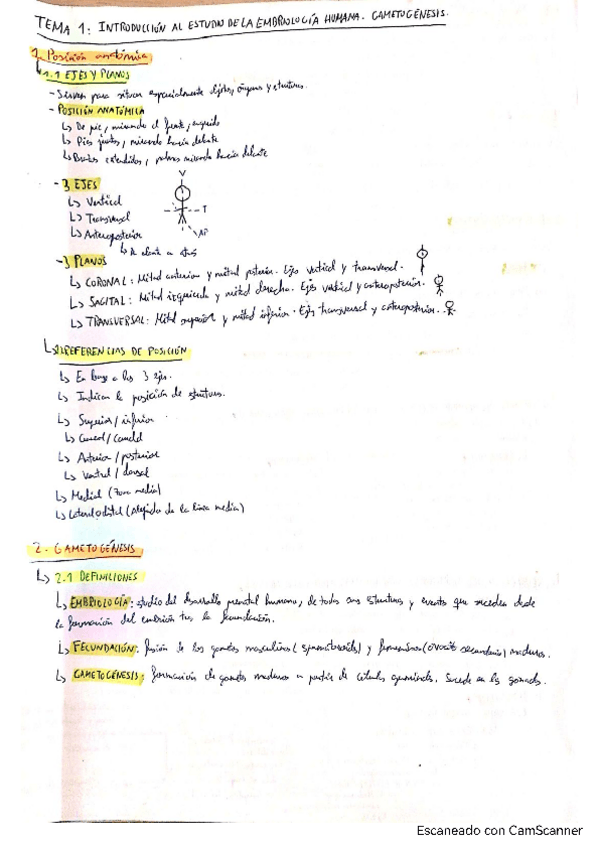 TEMA 1: INTRODUCCIÓN AL ESTUDIO DE LA EMBRIOLOGÍA HUMANA. GAMETOGÉNESIS.
1. Posición anatómica
↳ 1.1 EJES Y PLANOS
- Sirven para situar espacialmente objetos, órganos y estructuras.
- POSICIÓN ANATÓMICA
↳ De pie, mirando al frente, erguido
↳ Pies juntos, mirando hacia delante
↳ Brazos extendidos, palmas mirando hacia delante
- 3 EJES
↳ Vertical
↳ Transversal
↳ Anteroposterior
↳ De delante a atrás
V
T
AP
- 3 PLANOS
↳ CORONAL: Mitad anterior y mitad posterior. Ejes vertical y transversal.
↳ SAGITAL: Mitad izquierda y mitad derecha. Ejes vertical y anteroposterior.
↳ TRANSVERSAL: Mitad superior y mitad inferior. Ejes transversal y anteroposterior.
REFERENCIAS DE POSICIÓN
↳ En base a los 3 ejes.
↳ Indican la posición de estructuras.
↳ Superior / inferior
↳ Craneal / caudal
↳ Anterior / posterior
↳ Ventral / dorsal
↳ Medial (zona media)
↳ Lateral o distal (alejado de la línea media)
2. GAMETOGÉNESIS
↳ 2.1 DEFINICIONES
↳ EMBRIOLOGÍA: estudio del desarrollo prenatal humano, de todas sus estructuras y eventos que suceden desde
la formación del embrión tras la fecundación.
↳ FECUNDACIÓN: fusión de los gametos masculinos (espermatozoide) y femeninos (ovocito secundario) maduros.
↳ GAMETOGÉNESIS: formación de gametos maduros a partir de células germinales. Sucede en las gónadas.
Escaneado con CamScanner